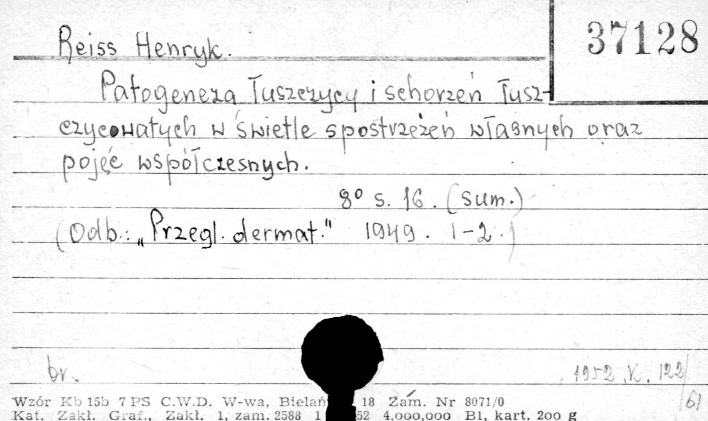 37128
Reiss Henryk.
Patogeneza łuszczycy i schorzeń łusz-
czycowatych w świetle spostrzeżeń własnych oraz
pojęć współczesnych.
8° s. 16. (sum.)
(Odb.: „Przegl. dermat." 1949. 1-2.)
br. 1952. K. 122/61
Wzór Kb 15b 7 PS C.W.D. W-wa, Bielań 18 Zam. Nr 8071/0
Kat. Zakł. Graf., Zakł. 1, zam. 2588 1 52 4,000,000 B1, kart. 200 g